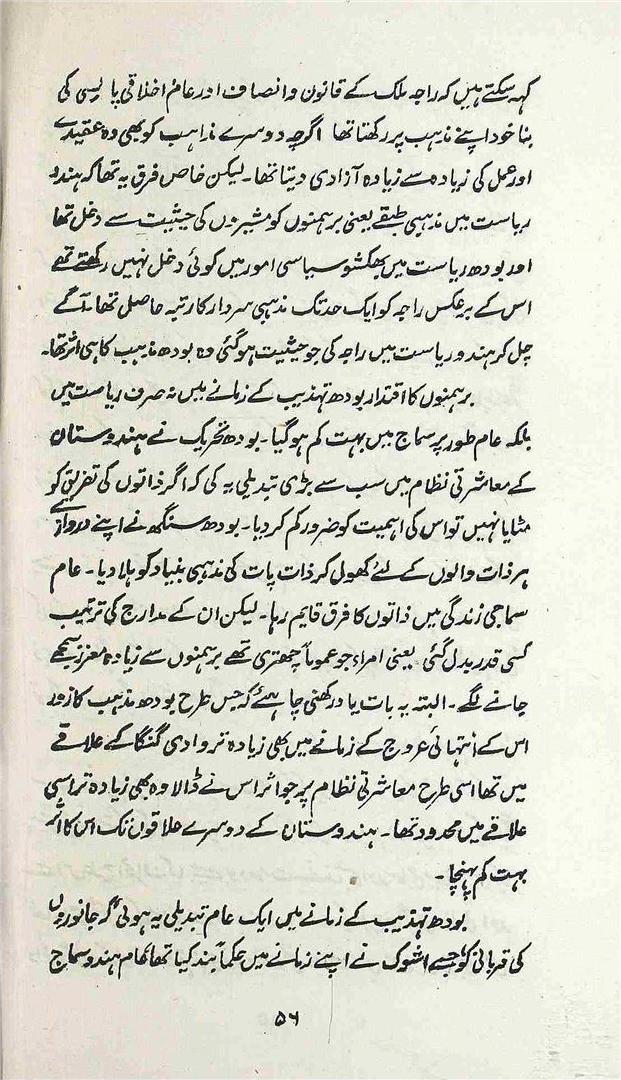 کہہ سکتے ہیں کہ راجہ ملک کے قانون و انصاف اور عام اخلاقی پالیسی کی
بنا خود اپنے مذہب پر رکھتا تھا اگرچہ دوسرے مذاہب کو بھی وہ عقیدے
اور عمل کی زیادہ سے زیادہ آزادی دیتا تھا۔ لیکن خاص فرق یہ تھا کہ ہندو
ریاست میں مذہبی طبقے یعنی برہمنوں کو مشیروں کی حیثیت سے دخل تھا
اور بودھ ریاست میں بھکشو سیاسی امور میں کوئی دخل نہیں رکھتے تھے
اس کے برعکس راجہ کو ایک حد تک مذہبی سردار کا رتبہ حاصل تھا۔ آگے
چل کر ہندو ریاست میں راجہ کی جو حیثیت ہو گئی وہ بودھ مذہب کا ہی اثر تھا۔
برہمنوں کا اقتدار بودھ تہذیب کے زمانے میں نہ صرف ریاست میں
بلکہ عام طور پر سماج میں بہت کم ہو گیا۔ بودھ تحریک نے ہندوستان
کے معاشرتی نظام میں سب سے بڑی تبدیلی یہ کی کہ اگر ذاتوں کی تفریق کو
مٹایا نہیں تو اس کی اہمیت کو ضرور کم کر دیا۔ بودھ سنگھ نے اپنے دروازے
ہر ذات والوں کے لئے کھول کر ذات پات کی مذہبی بنیاد کو ہلا دیا۔ عام
سماجی زندگی میں ذاتوں کا فرق قایم رہا۔ لیکن ان کے مدارج کی ترتیب
کسی قدر بدل گئی یعنی امراء جو عموماً چھتری تھے برہمنوں سے زیادہ معزز سمجھے
جانے لگے۔ البتہ یہ بات یاد رکھنی چاہیئے کہ جس طرح بودھ مذہب کا زور
اس کے انتہائی عروج کے زمانے میں بھی زیادہ تر وادی گنگا کے علاقے
میں تھا اسی طرح معاشرتی نظام پر جو اثر اس نے ڈالا وہ بھی زیادہ تر اسی
علاقے میں محدود تھا۔ ہندوستان کے دوسرے علاقوں تک اس کا اثر
بہت کم پہنچا۔
بودھ تہذیب کے زمانے میں ایک عام تبدیلی یہ ہوئی کہ جانوروں
کی قربانی کو جسے اشوک نے اپنے زمانے میں حکماً بند کیا تھا تمام ہندو سماج
۵۶